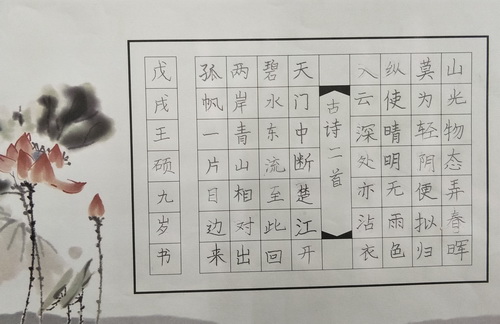 山光物态弄春晖
莫为轻阴便拟归
纵使晴明无雨色
入云深处亦沾衣
古诗二首
天门中断楚江开
碧水东流至此回
两岸青山相对出
孤帆一片日边来
戊戌王硕九岁书